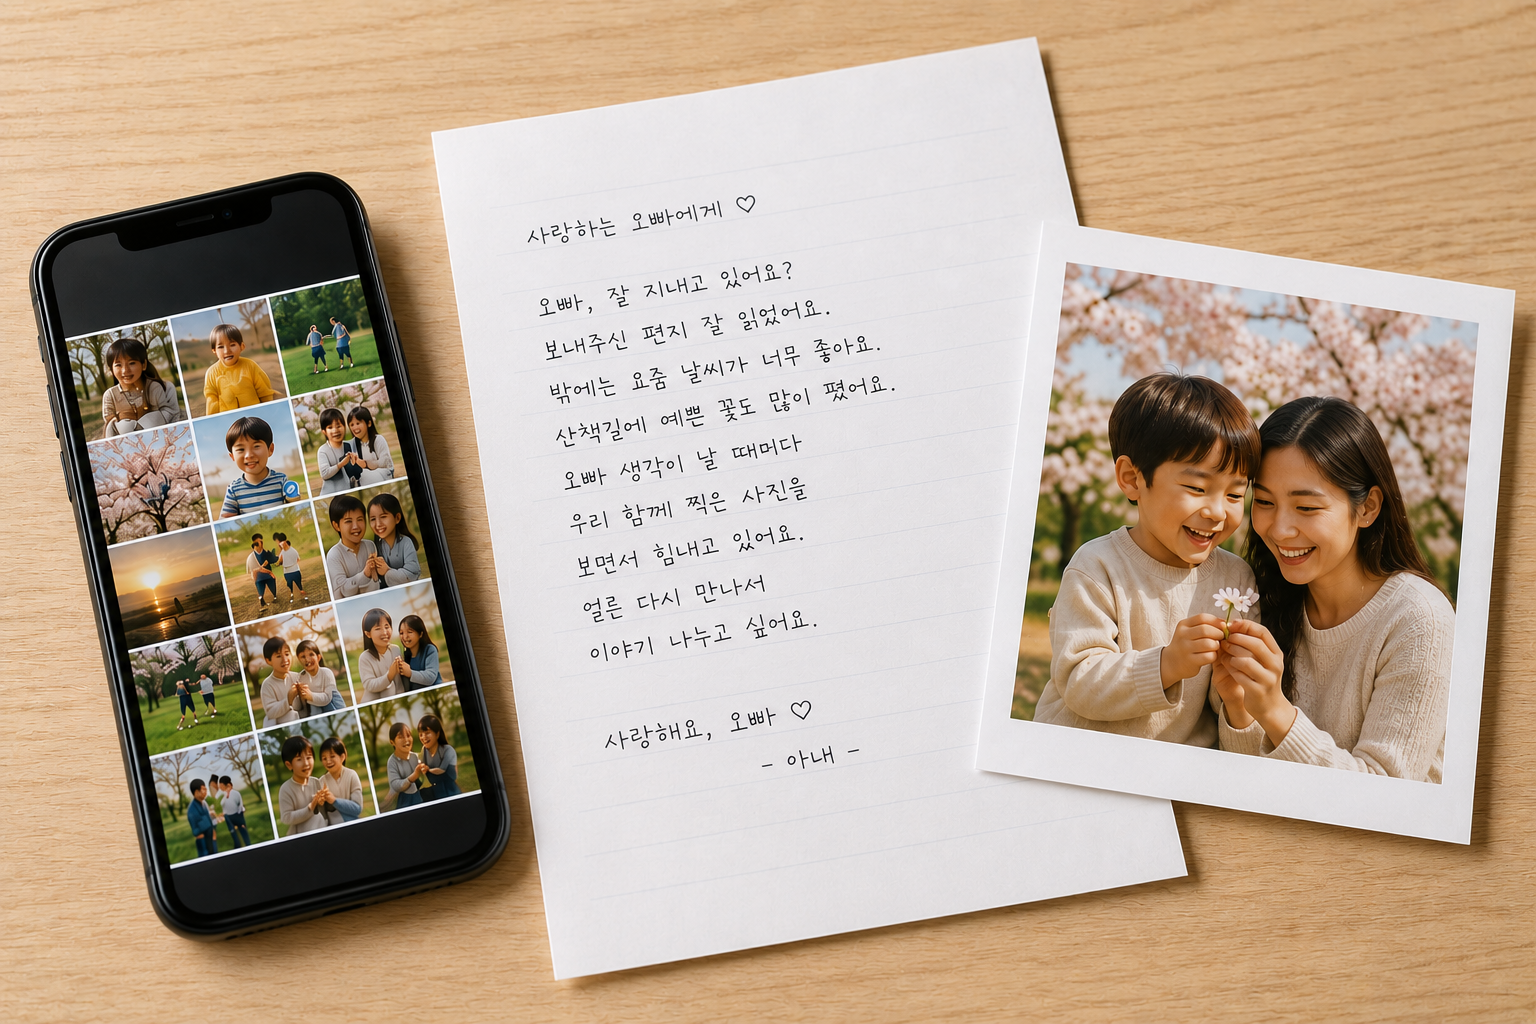 사랑하는 오빠에게 ♡
오빠, 잘 지내고 있어요?
보내주신 편지 잘 읽었어요.
밖에는 요즘 날씨가 너무 좋아요.
산책길에 예쁜 꽃도 많이 폈어요.
오빠 생각이 날 때머다
우리 함께 찍은 사진을
보면서 힘내고 있어요.
얼른 다시 만나서
이야기 나누고 싶어요.
사랑해요, 오빠 ♡
- 아내 -